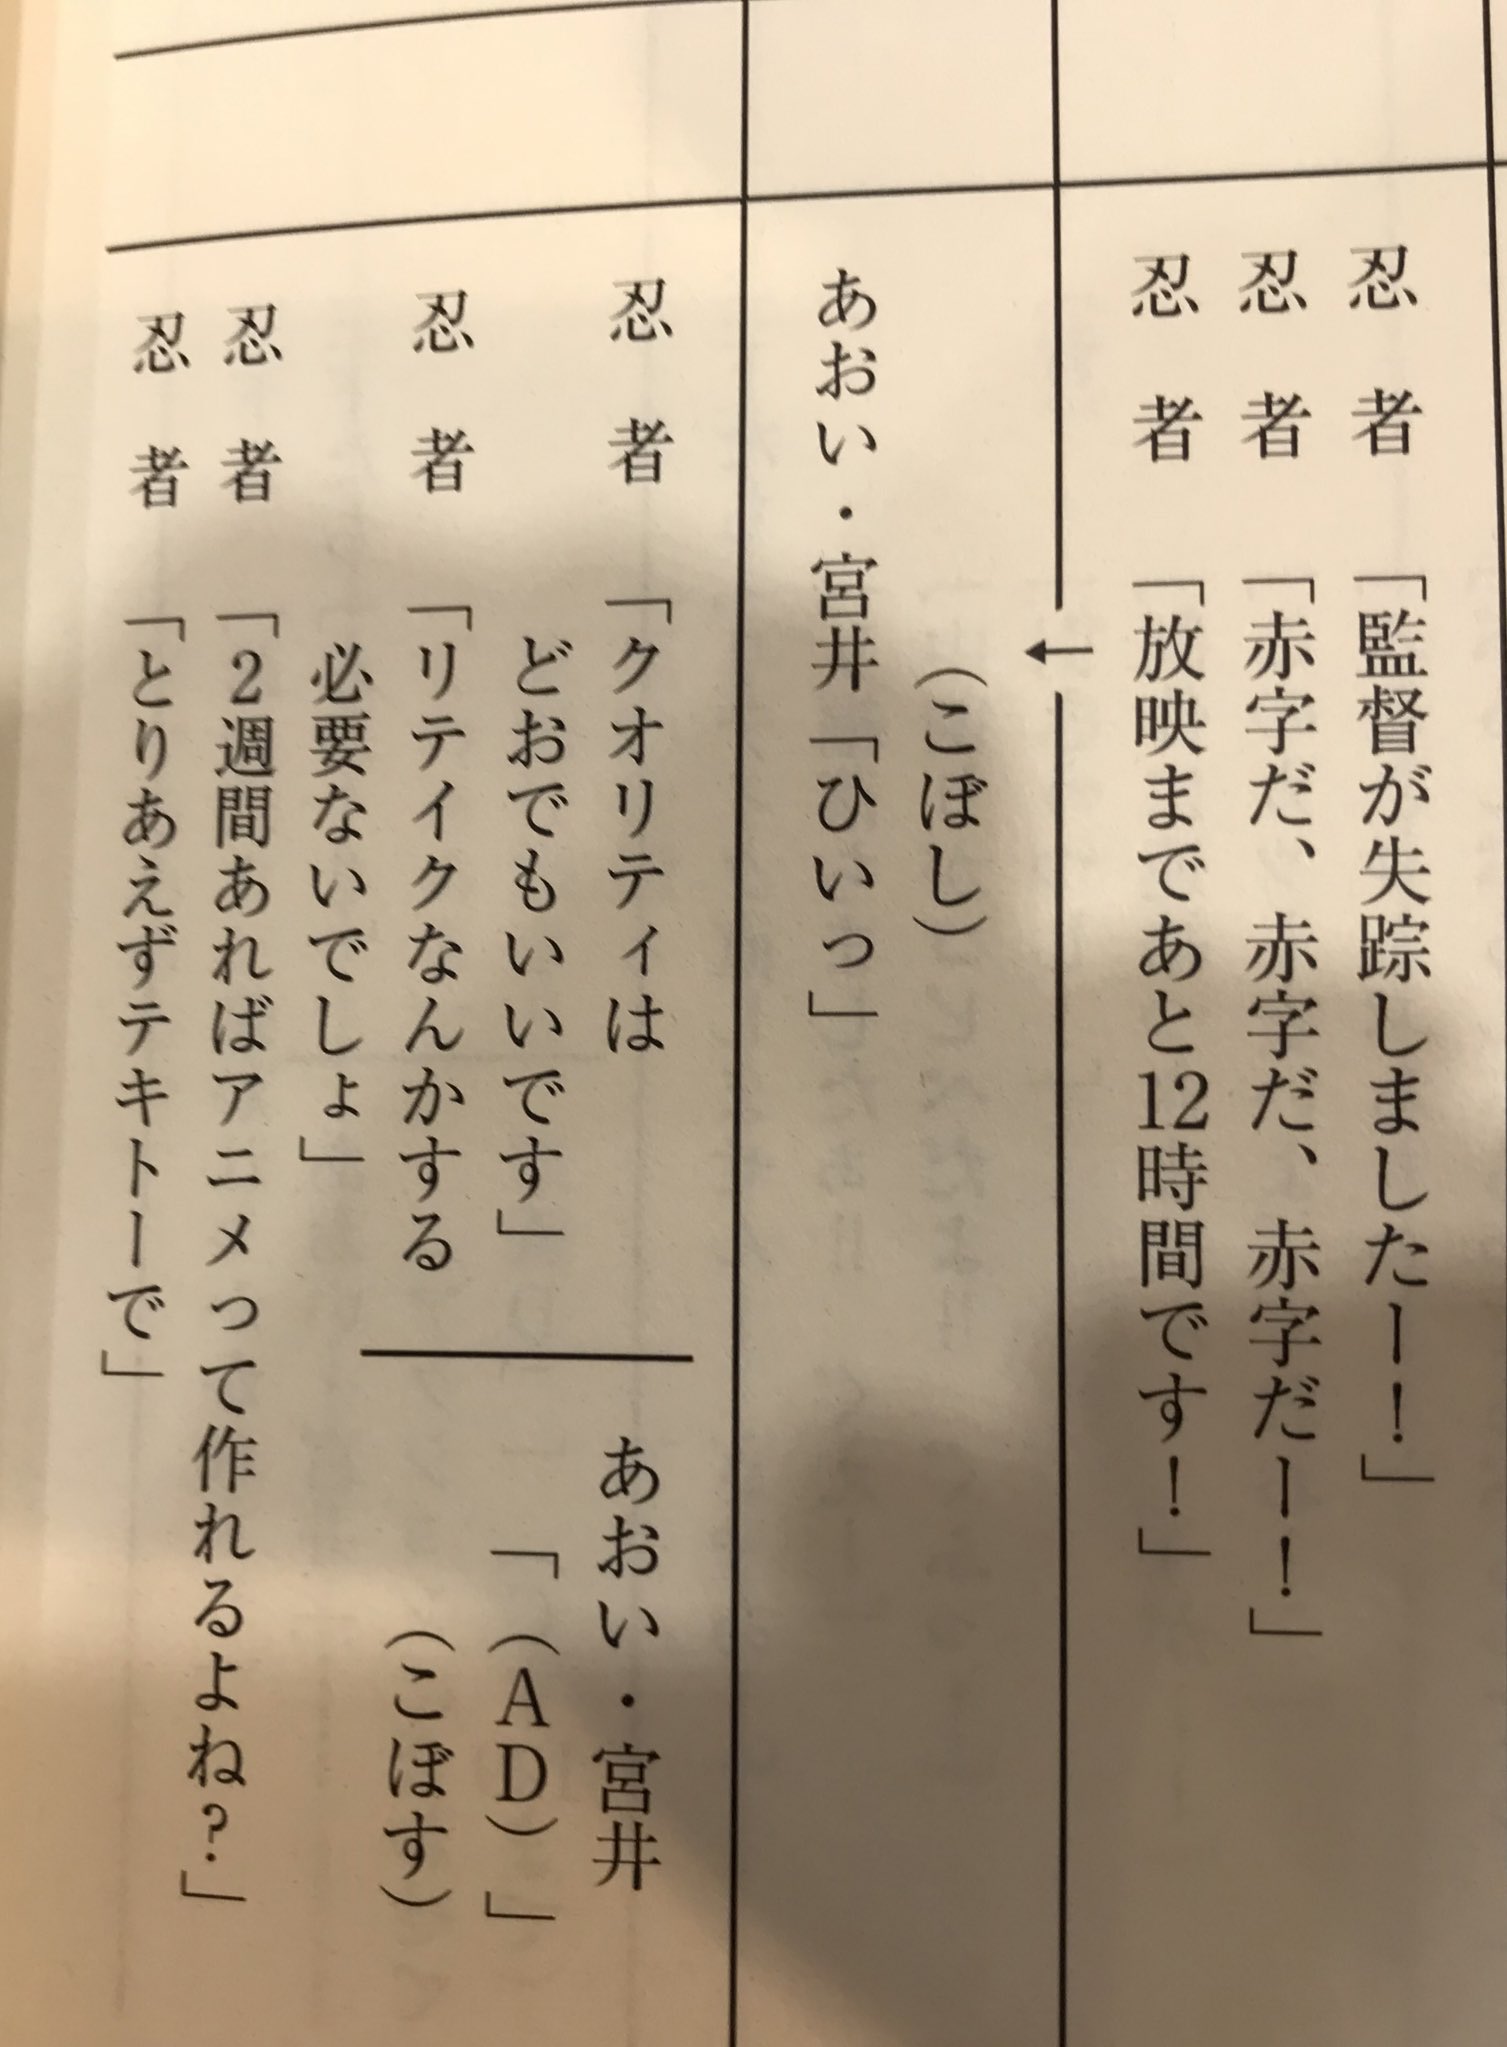 忍者「監督が失踪しましたー！」
忍者「赤字だ、赤字だ、赤字だー！」
忍者「放映まであと12時間です！」
←
（こぼし）
あおい・宮井「ひいっ」
忍者「クオリティは
どおでもいいです」
忍者「リテイクなんかする
必要ないでしょ」
あおい・宮井
「（ＡＤ）」
（こぼす）
忍者「２週間あればアニメって作れるよね？」
忍者「とりあえずテキトーで」